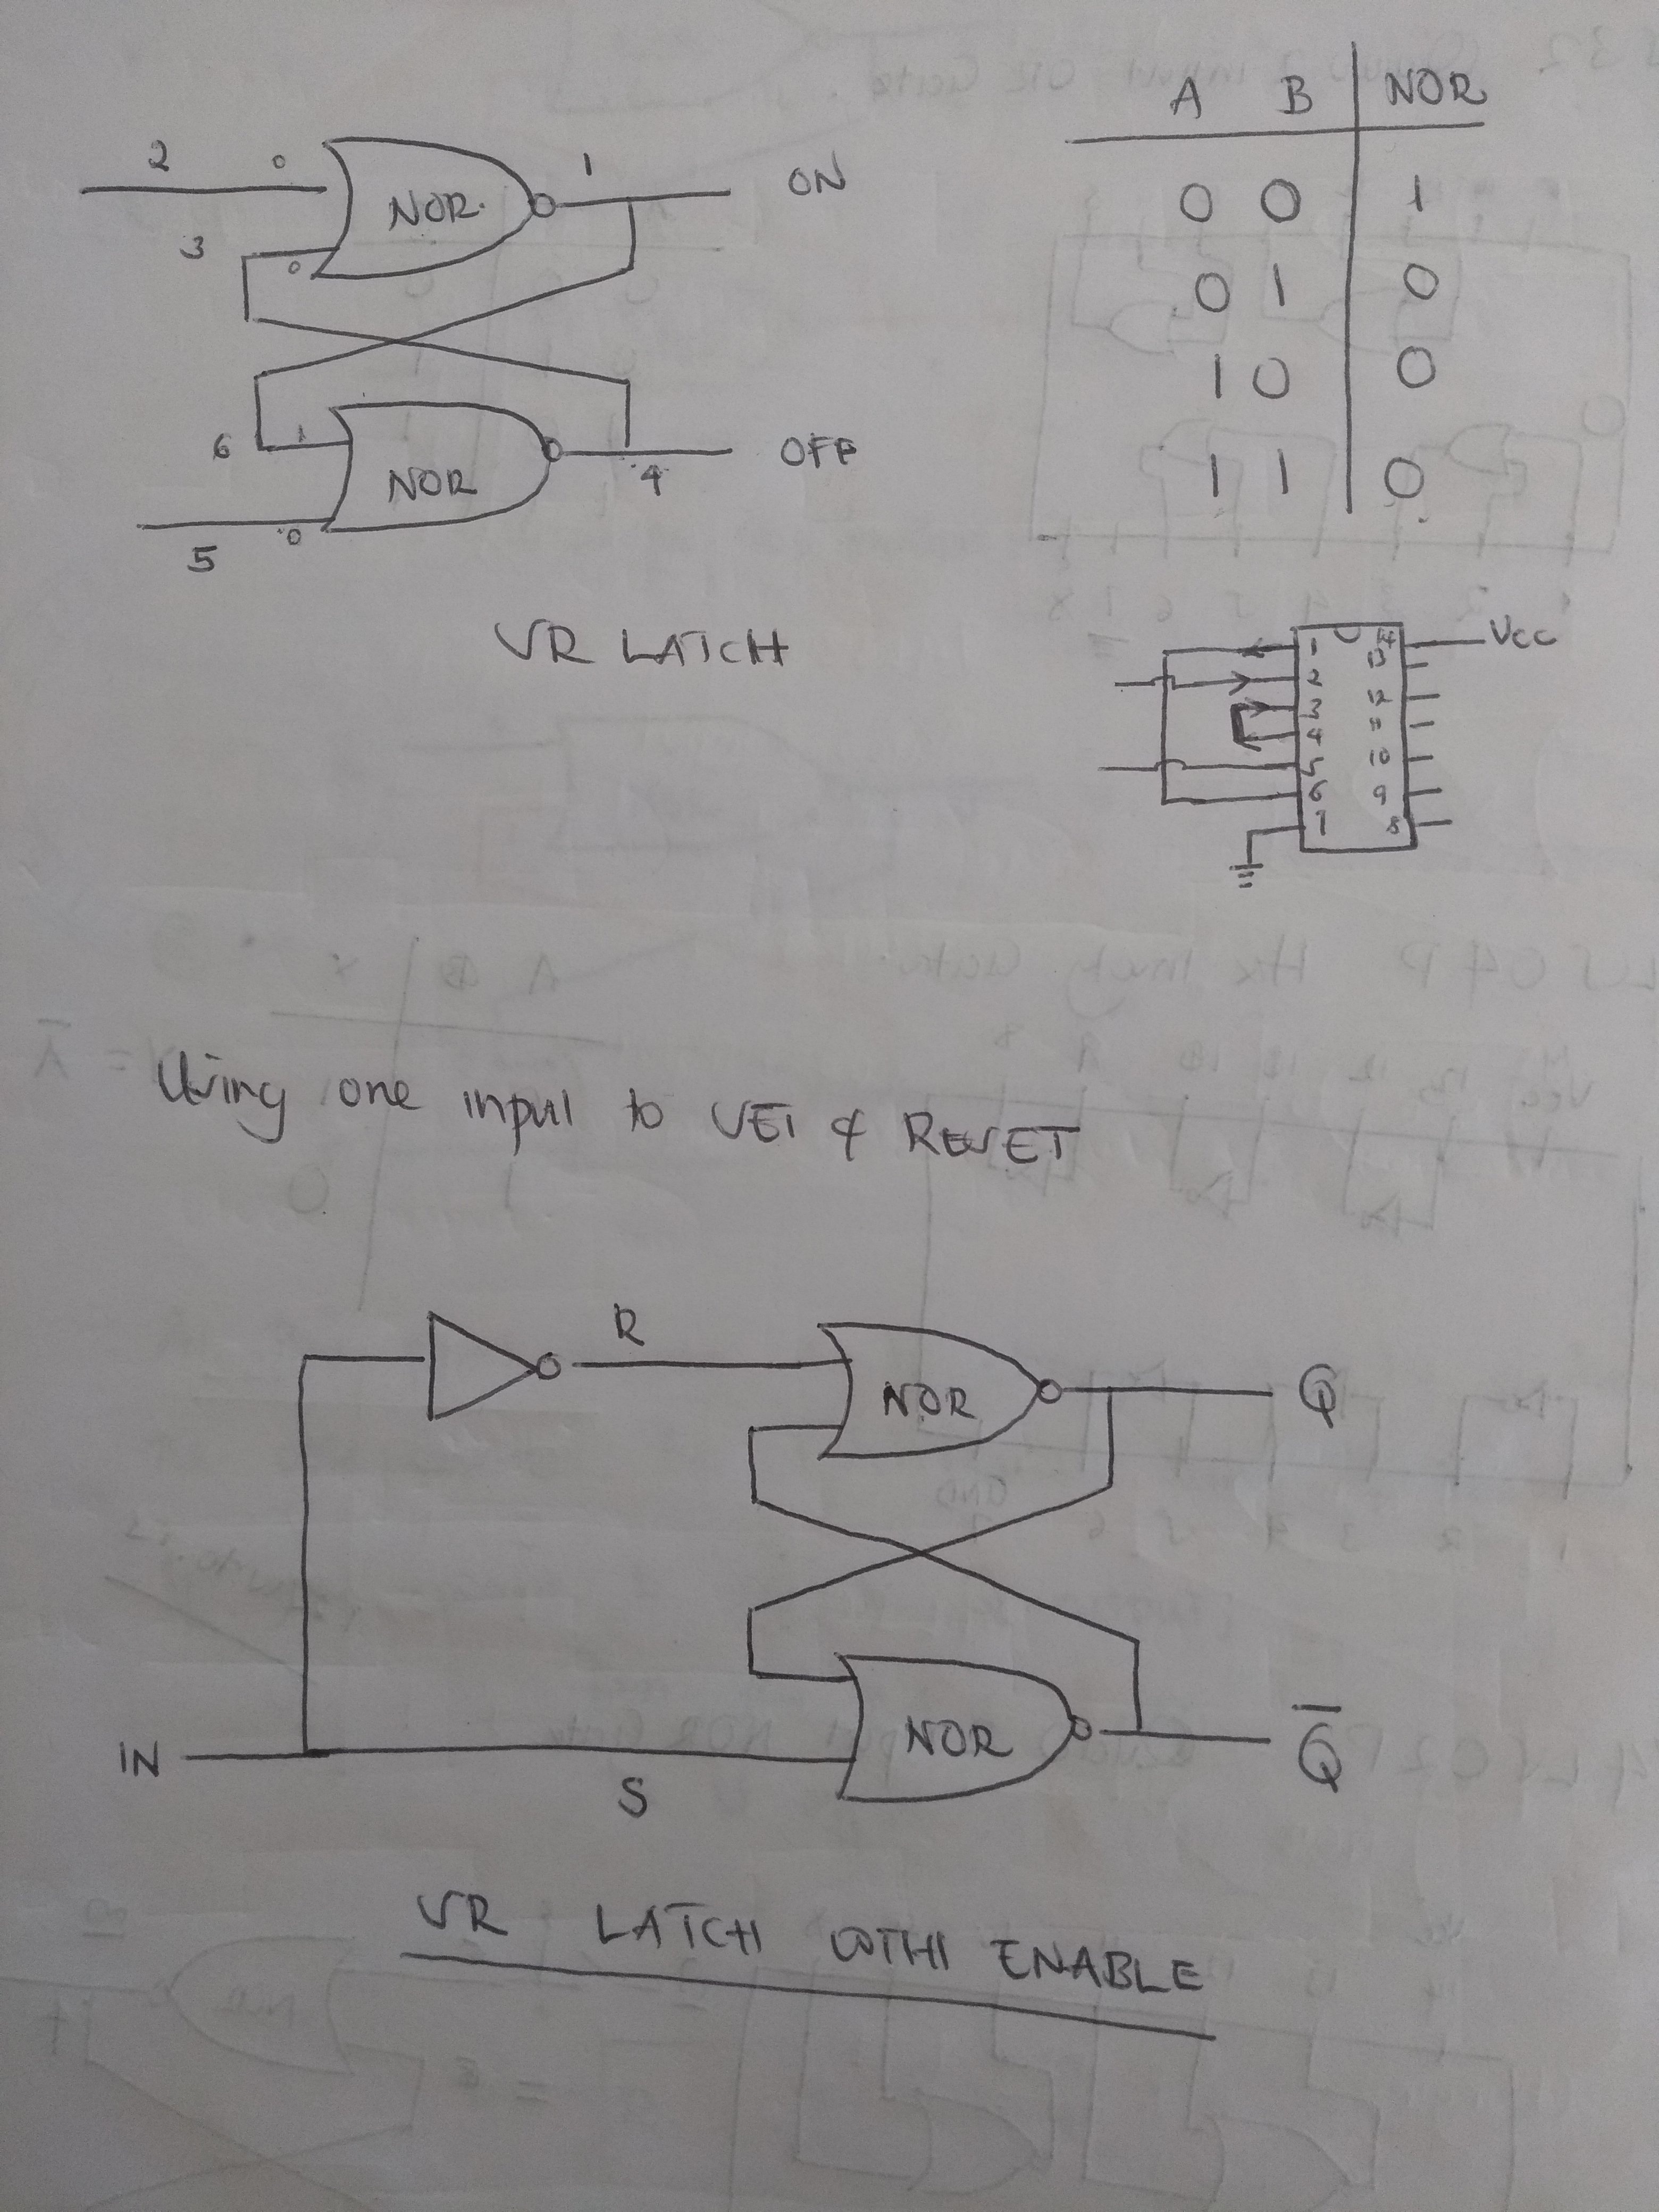 2 0 1 ON
3 0 NOR
6 1 NOR 4 OFF
5 0
SR LATCH
A B NOR
0 0 1
0 1 0
1 0 0
1 1 0
1 14 Vcc
2 13
3 12
4 11
5 10
6 9
7 8
Using one input to SET & RESET
R NOR Q
IN S NOR Q̅
SR LATCH WITH ENABLE